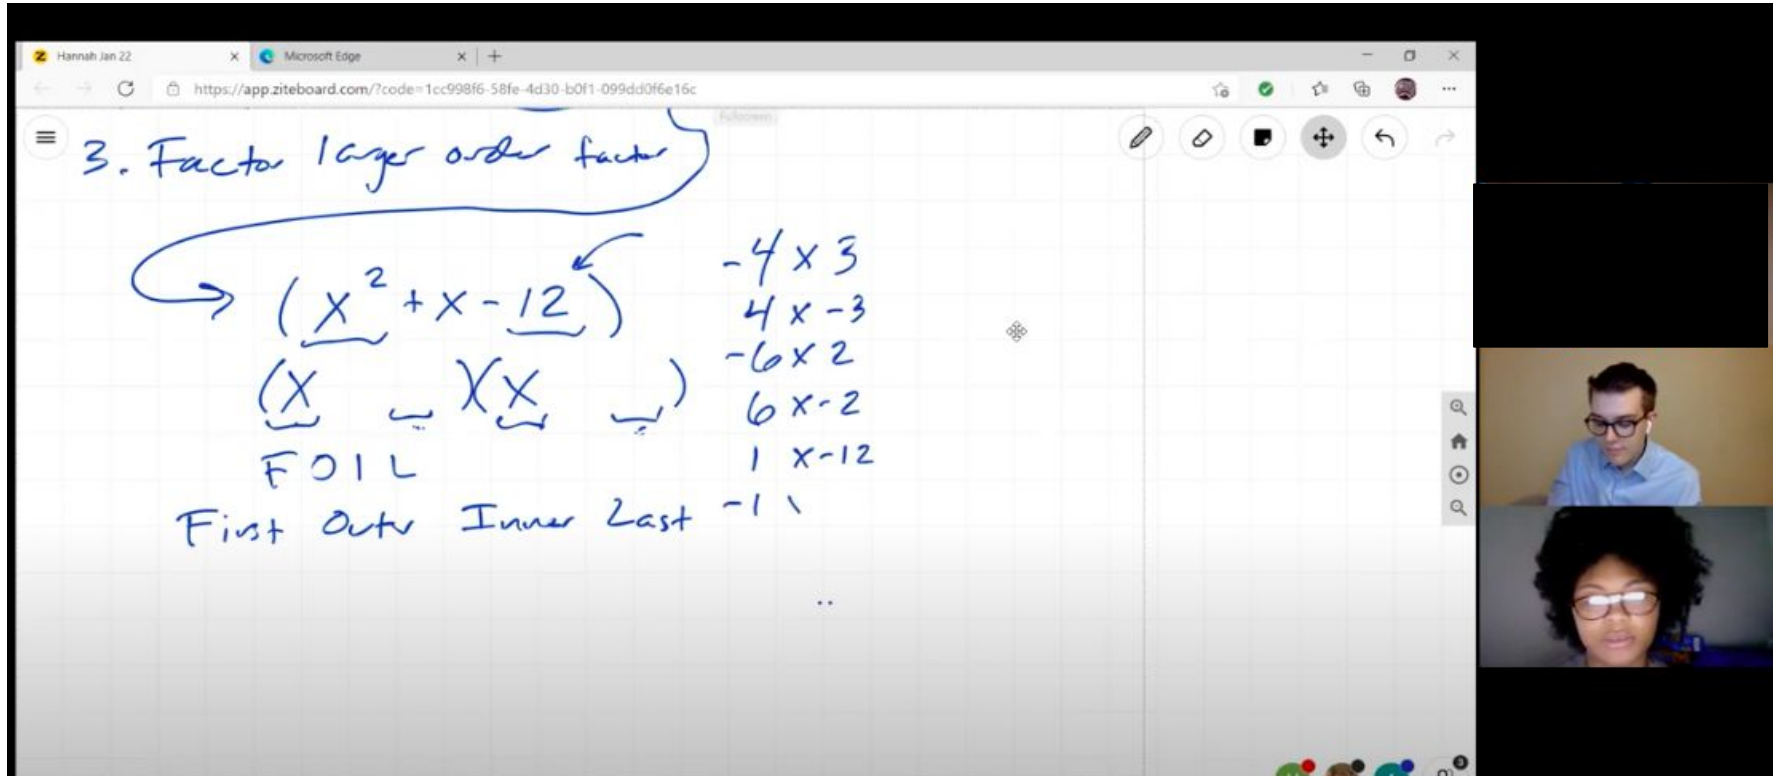 Hannah Jan 22
Microsoft Edge
https://app.ziteboard.com/?code=1cc998f6-58fe-4d30-b0f1-099dd0f6e16c
Fullscreen
3. Factor larger order factor
(x² + x - 12)
(x _ )(x _ )
F O I L
First Outr Inner Last
-4 x 3
4 x -3
-6 x 2
6 x -2
1 x -12
-1 \
3